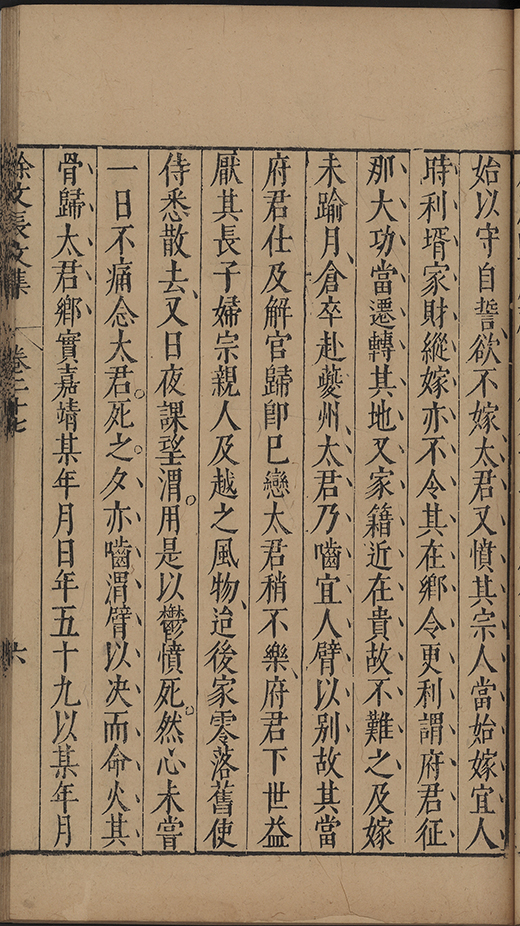 始以守自誓、欲不嫁太君又憤其宗人當始嫁宜人
時利壻家財縱嫁亦不令其在鄉令更利謂府君征
那大功當遷轉其地又家籍近在貴故不難之及嫁
未踰月、倉卒赴夔州、太君乃嚙宜人臂以别故其當
府君仕及解官歸卽巳戀太君稍不樂、府君下世益
厭其長子婦宗親人及越之風物、迨後家零落舊使
侍悉散去、又日夜課望渭。用是以鬱憤死。然心未嘗
一日不痛念太君。死之夕亦嚙渭臂以决而命火其
骨歸太君鄉實嘉靖某年月日年五十九以某年月
徐文長文集 卷二十七 六